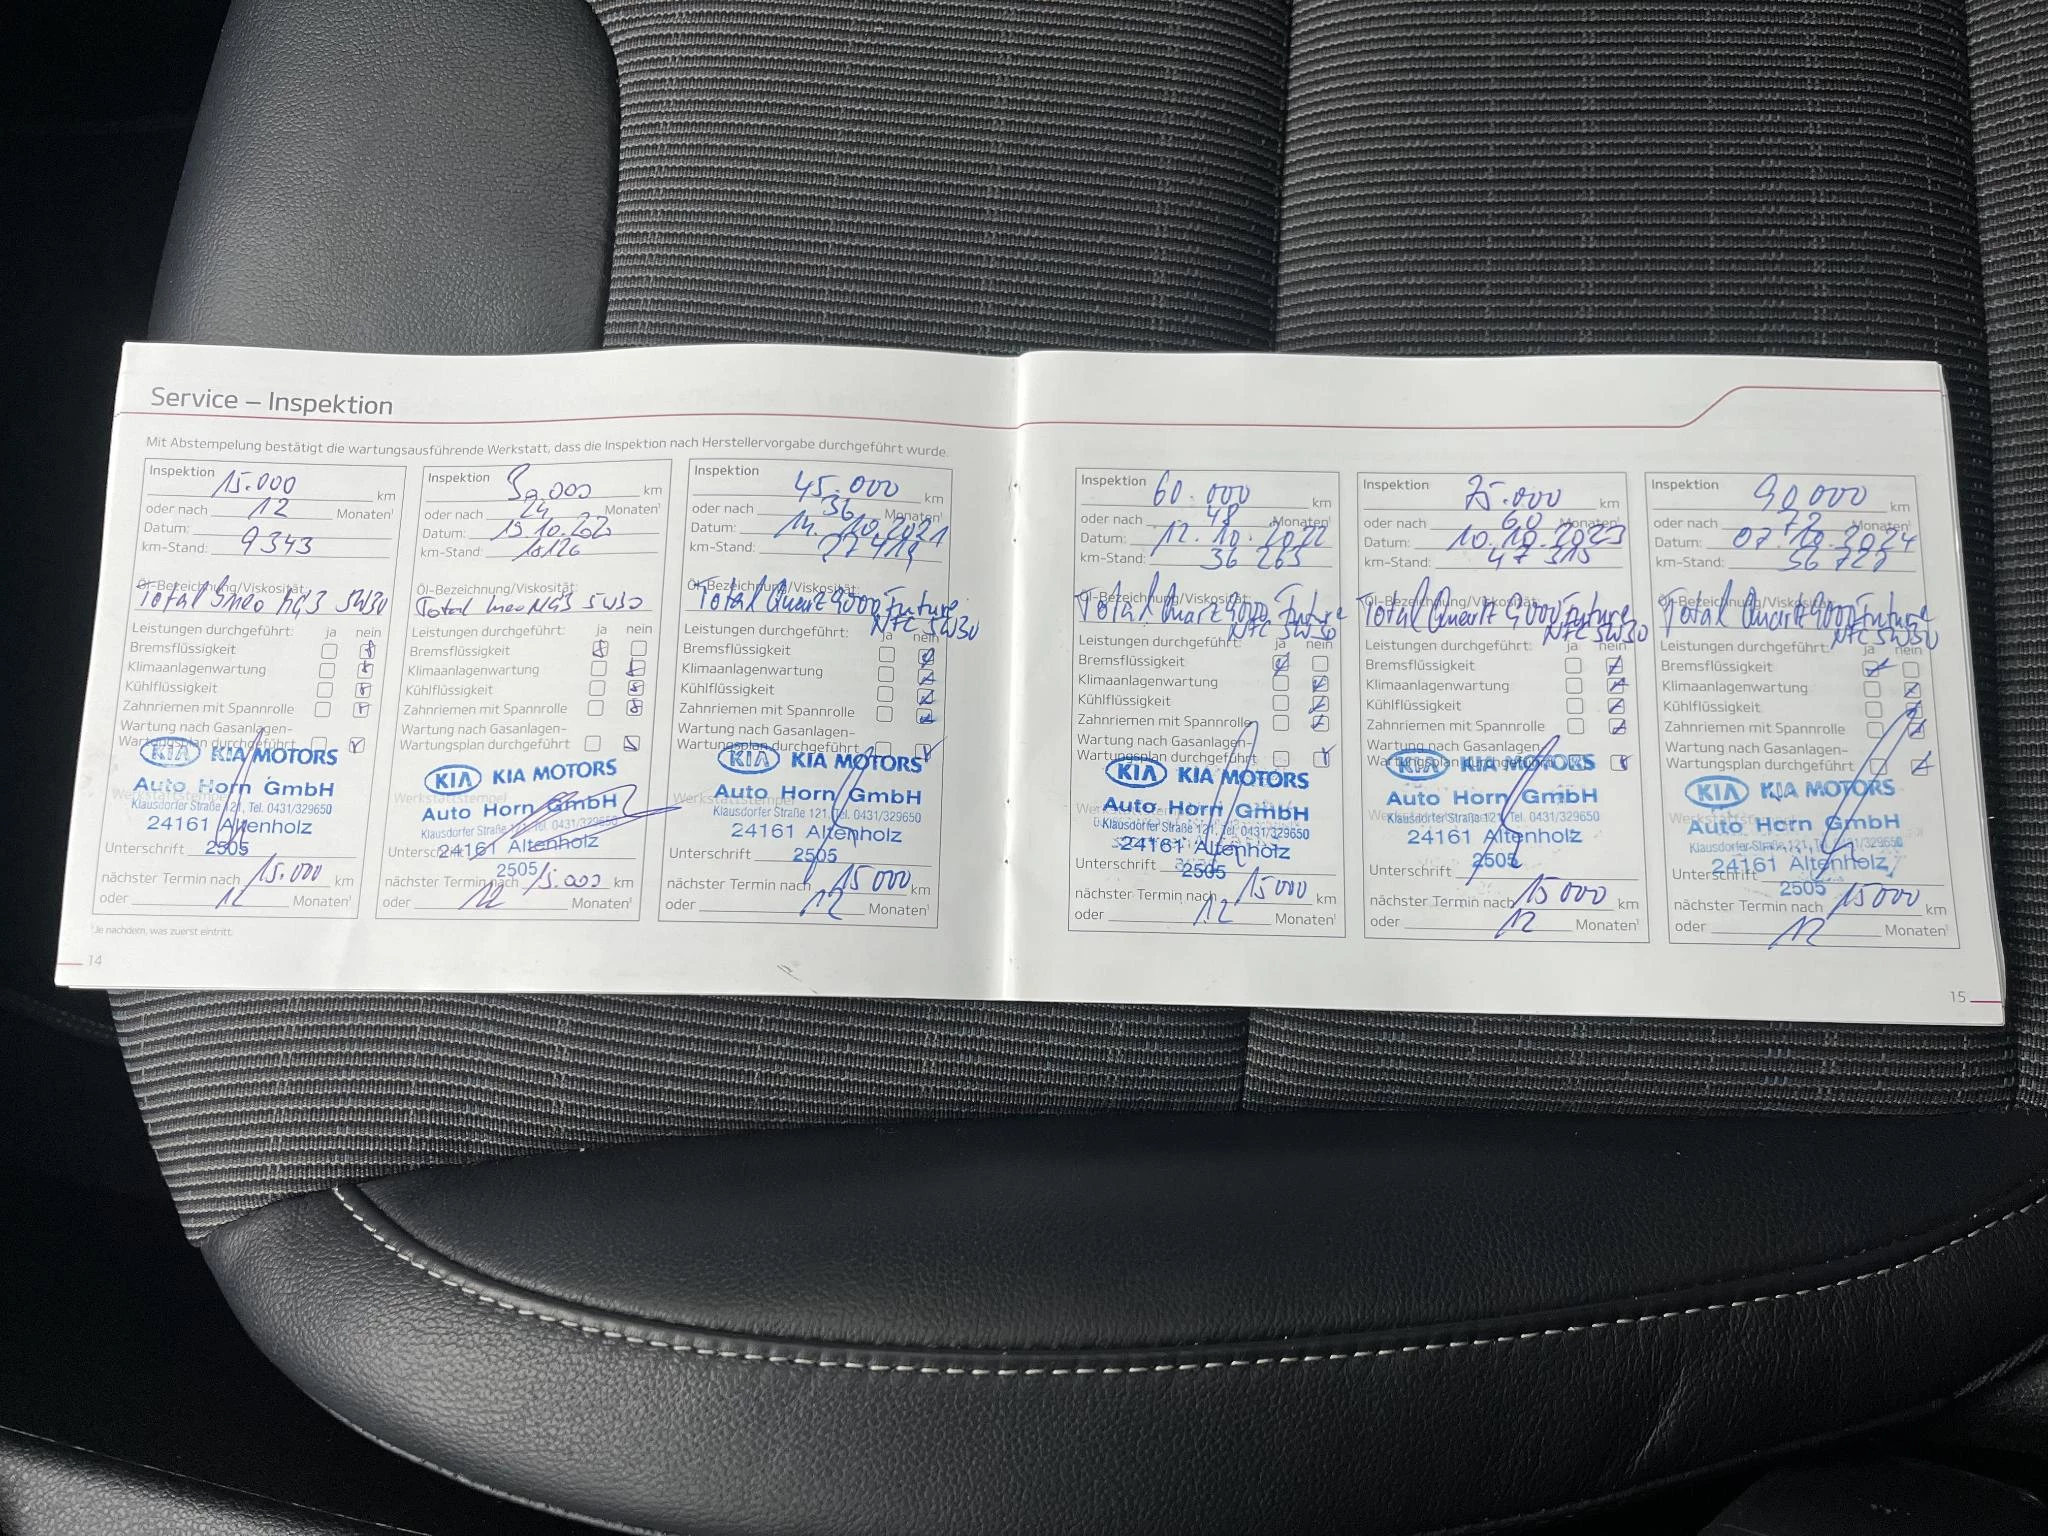 Service – Inspektion
Mit Abstempelung bestätigt die wartungsausführende Werkstatt, dass die Inspektion nach Herstellervorgabe durchgeführt wurde.
Inspektion 15.000 km
oder nach 12 Monaten¹
Datum:
km-Stand: 9343
Öl-Bezeichnung/Viskosität:
Total 5W30
Leistungen durchgeführt: ja nein
Bremsflüssigkeit
Klimaanlagenwartung
Kühlflüssigkeit
Zahnriemen mit Spannrolle
Wartung nach Gasanlagen-
Wartungsplan durchgeführt
KIA KIA MOTORS
Auto Horn GmbH
Werkstattstempel
Klausdorfer Straße 121, Tel. 0431/329650
24161 Altenholz
Unterschrift 2505
nächster Termin nach 15.000 km
oder 12 Monaten¹
Inspektion km
oder nach 24 Monaten¹
Datum:
km-Stand: 18126
Öl-Bezeichnung/Viskosität:
Total 5W30
Leistungen durchgeführt: ja nein
Bremsflüssigkeit
Klimaanlagenwartung
Kühlflüssigkeit
Zahnriemen mit Spannrolle
Wartung nach Gasanlagen-
Wartungsplan durchgeführt
KIA KIA MOTORS
Werkstattstempel
Auto Horn GmbH
Klausdorfer Straße 121, Tel. 0431/329650
Unterschrift 24161 Altenholz
2505
nächster Termin nach 15.000 km
oder 12 Monaten¹
Inspektion 45.000 km
oder nach 36 Monaten¹
Datum: 14.10.2021
km-Stand: 27419
Öl-Bezeichnung/Viskosität:
Total Quartz 9000 Future
NFC 5W30
Leistungen durchgeführt: ja nein
Bremsflüssigkeit
Klimaanlagenwartung
Kühlflüssigkeit
Zahnriemen mit Spannrolle
Wartung nach Gasanlagen-
Wartungsplan durchgeführt
KIA KIA MOTORS
Auto Horn GmbH
Werkstattstempel
Klausdorfer Straße 121, Tel. 0431/329650
24161 Altenholz
Unterschrift 2505
nächster Termin nach 15000 km
oder 12 Monaten¹
¹Je nachdem, was zuerst eintritt.
14
Inspektion 60.000 km
oder nach 48 Monaten¹
Datum: 12.10.2022
km-Stand: 36265
Öl-Bezeichnung/Viskosität:
Total Quartz 9000 Future
NFC 5W30
Leistungen durchgeführt: ja nein
Bremsflüssigkeit
Klimaanlagenwartung
Kühlflüssigkeit
Zahnriemen mit Spannrolle
Wartung nach Gasanlagen-
Wartungsplan durchgeführt
KIA KIA MOTORS
Auto Horn GmbH
Klausdorfer Straße 121, Tel. 0431/329650
24161 Altenholz
Unterschrift 2505
nächster Termin nach 15000 km
oder 12 Monaten¹
Inspektion 75.000 km
oder nach 60 Monaten¹
Datum: 10.10.2023
km-Stand: 47315
Öl-Bezeichnung/Viskosität:
Total Quartz 9000 Future
NFC 5W30
Leistungen durchgeführt: ja nein
Bremsflüssigkeit
Klimaanlagenwartung
Kühlflüssigkeit
Zahnriemen mit Spannrolle
Wartung nach Gasanlagen-
Wartungsplan durchgeführt
KIA KIA MOTORS
Auto Horn GmbH
Werkstattstempel
Klausdorfer Straße 121, Tel. 0431/329650
24161 Altenholz
2505
Unterschrift
nächster Termin nach 15000 km
oder 12 Monaten¹
Inspektion 90000 km
oder nach 72 Monaten¹
Datum: 07.10.2024
km-Stand: 56727
Öl-Bezeichnung/Viskosität:
Total Quartz 9000 Future
NFC 5W30
Leistungen durchgeführt: ja nein
Bremsflüssigkeit
Klimaanlagenwartung
Kühlflüssigkeit
Zahnriemen mit Spannrolle
Wartung nach Gasanlagen-
Wartungsplan durchgeführt
KIA KIA MOTORS
Werkstattstempel
Auto Horn GmbH
Klausdorfer Straße 121, Tel. 0431/329650
24161 Altenholz
Unterschrift
2505
nächster Termin nach 15000 km
oder 12 Monaten¹
15